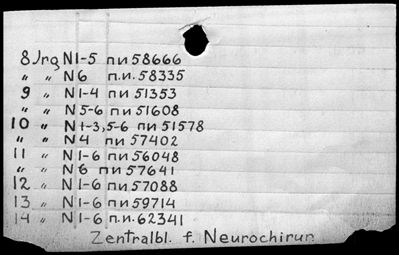 8 Jrg N1-5 пи 58666
" " N6 п.и. 58335
9 " N1-4 пи 51353
" " N5-6 пи 51608
10 " N1-3, 5-6 пи 51578
" " N4 пи 57402
11 " N1-6 пи 56048
" " N6 пи 57641
12 " N1-6 пи 57088
13 " N1-6 пи 59714
14 " N1-6 п.и. 62341
Zentralbl. f. Neurochirur